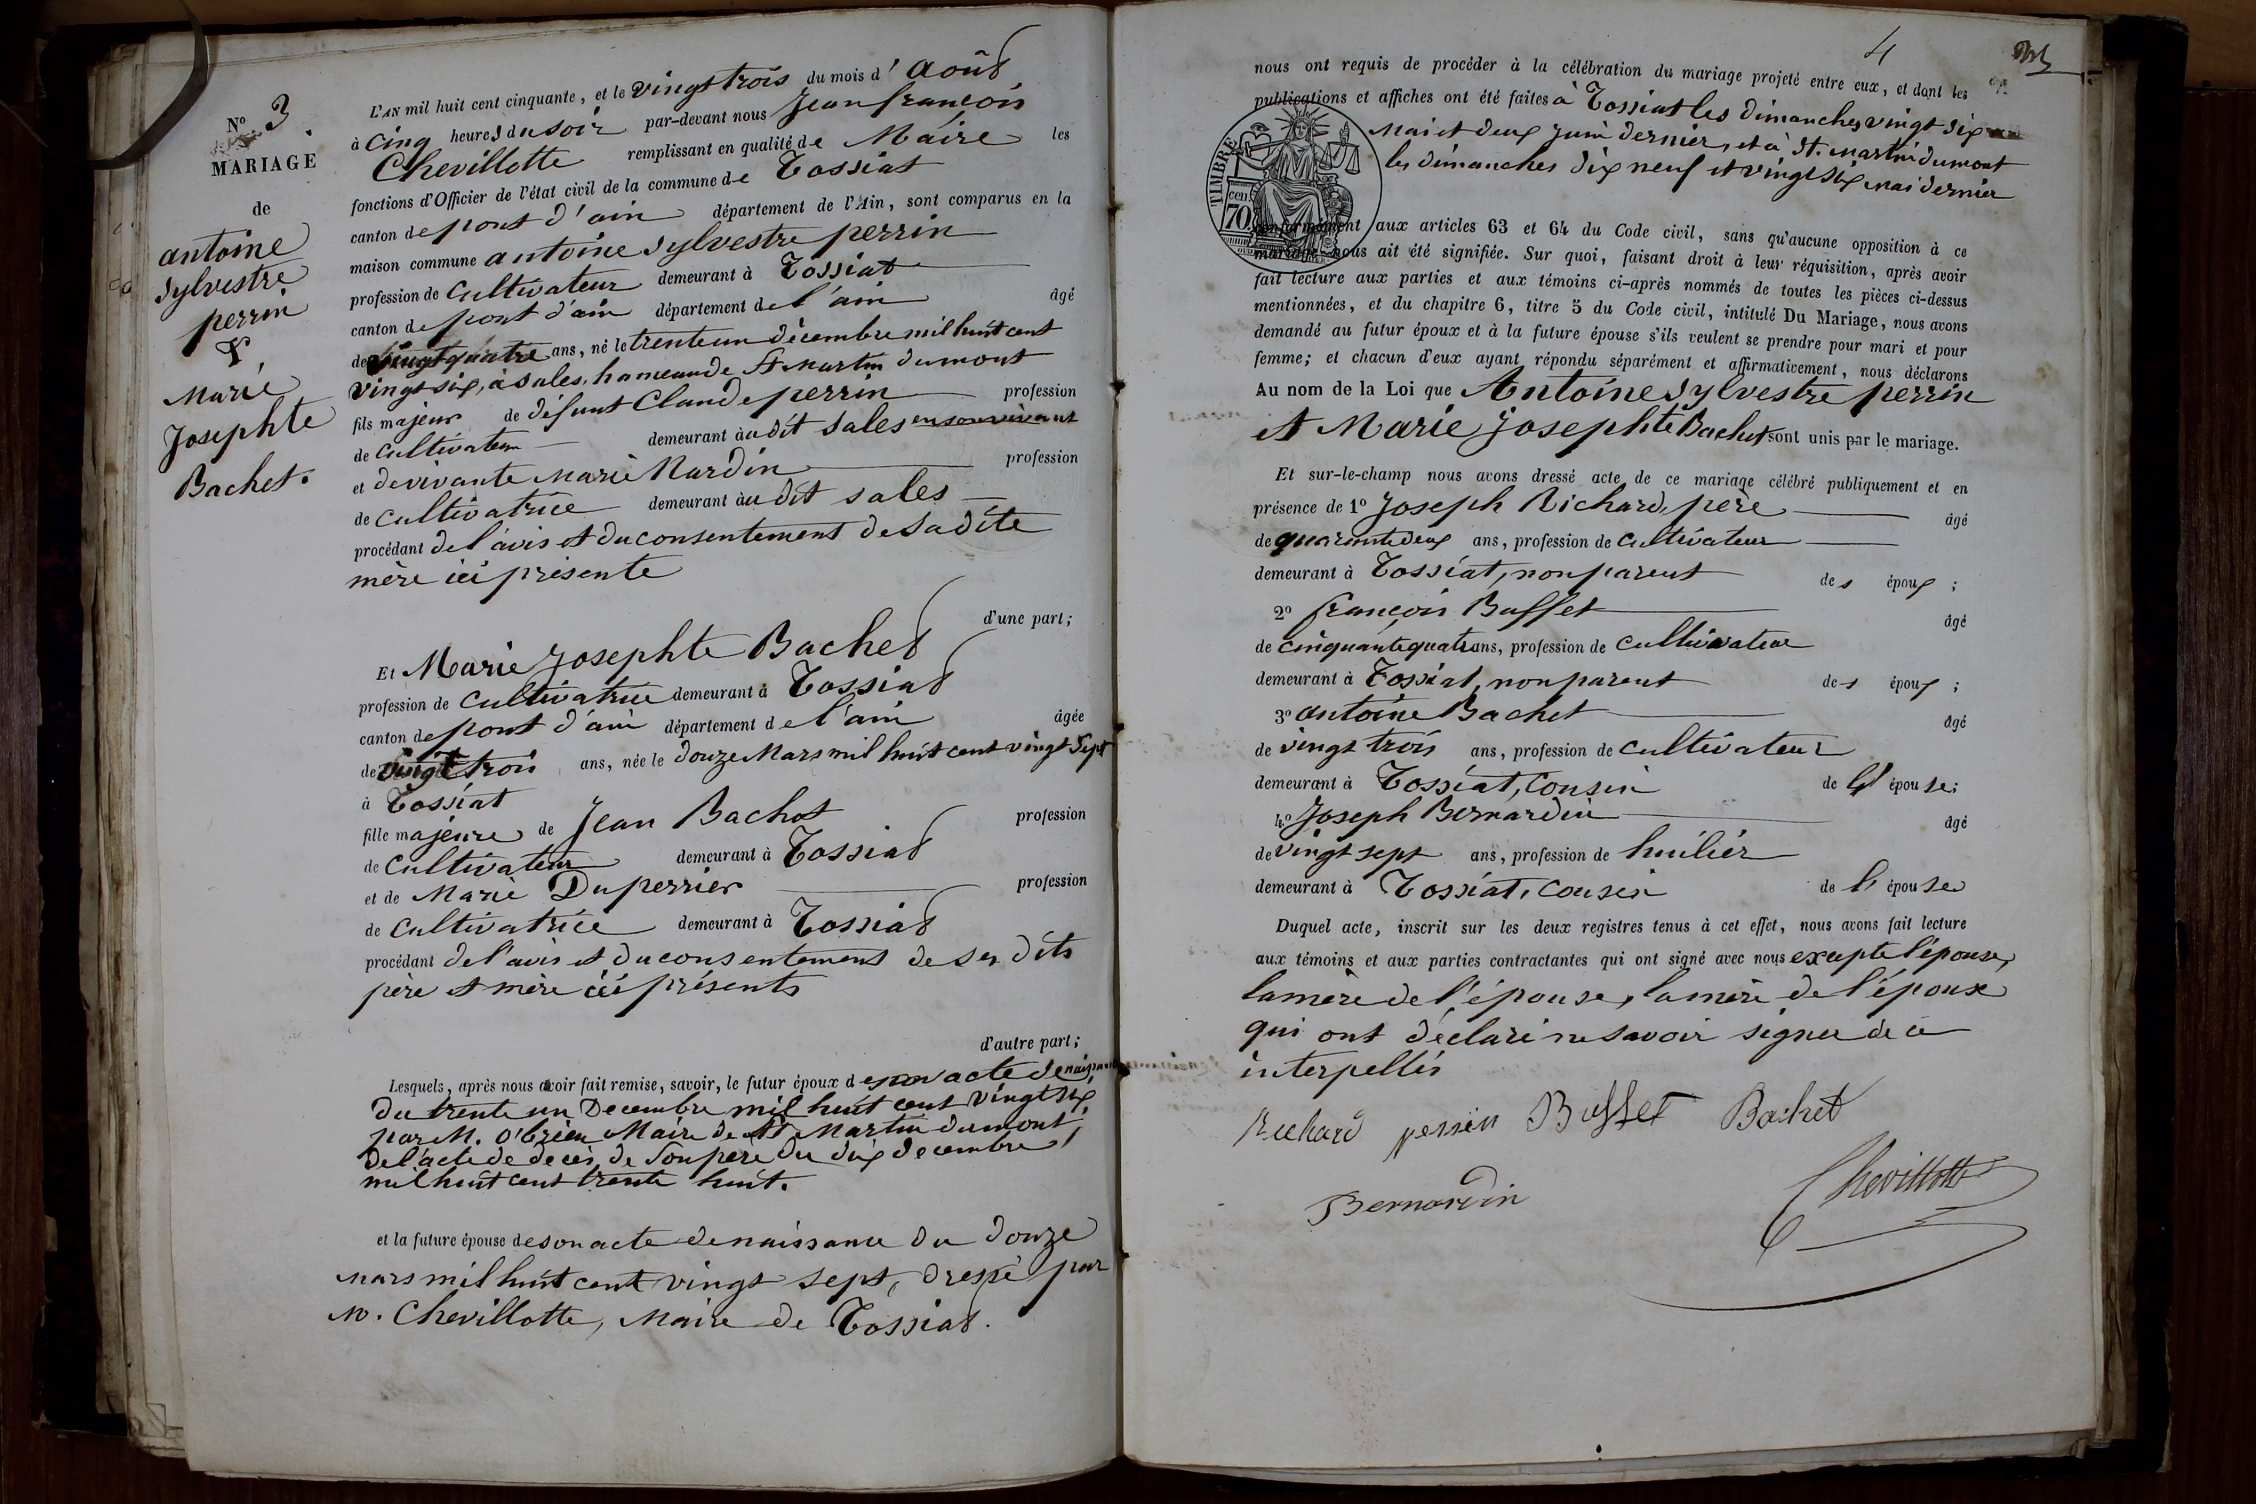 N° 3
MARIAGE
de
antoine
Sylvestre
perrin
&
Marie
Josephte
Bachet.
L'AN mil huit cent cinquante, et le vingt trois du mois d'Août
à cinq heures du soir par-devant nous Jean françois
Chevillotte remplissant en qualité de Maire les
fonctions d'Officier de l'état civil de la commune de Tossiat
canton de pont d'ain département de l'Ain, sont comparus en la
maison commune antoine Sylvestre perrin
profession de Cultivateur demeurant à Tossiat
canton de pont d'ain département de l'ain âgé
de vingt quatre ans, né le trente un décembre mil huit cent
vingt six, à Sales, hameau de St Martin dumont
fils majeur de défunt Claude perrin profession
de Cultivateur demeurant au dit Sales en son vivant
et de vivante Marie Nardin profession
de Cultivatrice demeurant au dit Sales
procédant de l'avis et du consentement de sa dite
mère ici présente
d'une part;
Et Marie Josephte Bachet
profession de cultivatrice demeurant à Tossiat
canton de pont d'ain département de l'ain âgée
de vingt trois ans, née le douze Mars mil huit cent vingt sept
à Tossiat
fille majeure de Jean Bachet profession
de Cultivateur demeurant à Tossiat
et de Marie Duperrier profession
de Cultivatrice demeurant à Tossiat
procédant de l'avis et du consentement de ses dits
père et mère ici présents
d'autre part;
Lesquels, après nous avoir fait remise, savoir, le futur époux de son acte de naissance
du trente un Decembre mil huit cent vingt six,
par M. O'brien Maire de St Martin dumont,
de l'acte de deces de son pere du dix decembre
mil huit cent trente huit.
et la future épouse de son acte de naissance du douze
mars mil huit cent vingt sept, dressé par
M. Chevillotte, Maire de Tossiat.
4
nous ont requis de procéder à la célébration du mariage projeté entre eux, et dont les
publications et affiches ont été faites à Tossiat les dimanches vingt six
Mai et deux Juin dernier, et à St. Martin dumont
les dimanches dix neuf et vingt six mai dernier
TIMBRE
cen
70
conformément aux articles 63 et 64 du Code civil, sans qu'aucune opposition à ce
mariage nous ait été signifiée. Sur quoi, faisant droit à leur réquisition, après avoir
fait lecture aux parties et aux témoins ci-après nommés de toutes les pièces ci-dessus
mentionnées, et du chapitre 6, titre 5 du Code civil, intitulé Du Mariage, nous avons
demandé au futur époux et à la future épouse s'ils veulent se prendre pour mari et pour
femme; et chacun d'eux ayant répondu séparément et affirmativement, nous déclarons
Au nom de la Loi que Antoine Sylvestre perrin
et Marie Josephte Bachet sont unis par le mariage.
Et sur-le-champ nous avons dressé acte de ce mariage célébré publiquement et en
présence de 1° Joseph Richard, père âgé
de quarante deux ans, profession de Cultivateur
demeurant à Tossiat, non parent des époux;
2° françois Buffet âgé
de cinquante quatre ans, profession de Cultivateur
demeurant à Tossiat, non parent des époux;
3° antoine Bachet âgé
de vingt trois ans, profession de cultivateur
demeurant à Tossiat, Cousin de l'épouse;
4° Joseph Bernardin âgé
de vingt sept ans, profession de huilier
demeurant à Tossiat, cousin de l'épouse
Duquel acte, inscrit sur les deux registres tenus à cet effet, nous avons fait lecture
aux témoins et aux parties contractantes qui ont signé avec nous excepté l'épouse,
la mère de l'épouse, la mère de l'époux
qui ont déclaré ne savoir signer de ce
interpellés
Richard perrin Buffet Bachet
Bernardin Chevillotte